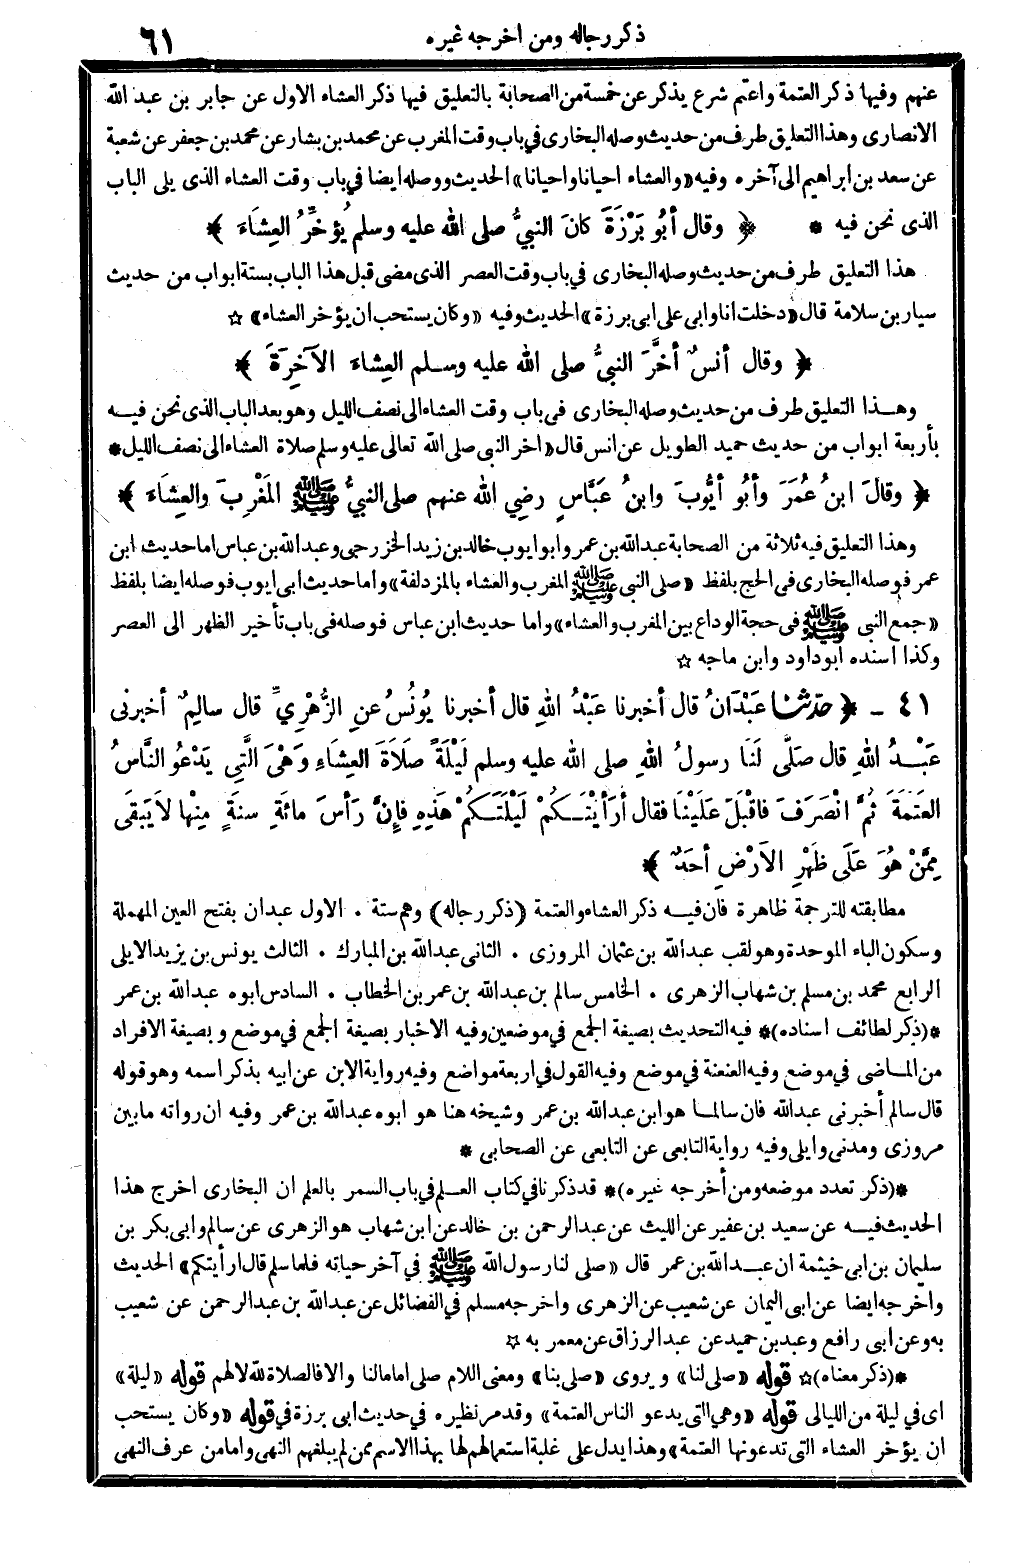 ذكر رجاله ومن اخرجه غيره
٦١
عنهم وفيها ذكر العتمة واعتم شرع يذكر عن خمسة من الصحابة بالتعليق فيها ذكر العشاء الاول عن جابر بن عبد الله
الانصارى وهذا التعليق طرف من حديث وصله البخارى فى باب وقت المغرب عن محمد بن بشار عن محمد بن جعفر عن شعبة
عن سعد بن ابراهيم الى آخره وفيه «والعشاء احيانا واحيانا» الحديث ووصله ايضا فى باب وقت العشاء الذى يلى الباب
الذى نحن فيه * ﴿ وقال أَبُو بَرْزَةَ كانَ النبيُّ صلى الله عليه وسلم يُؤَخِّرُ العِشَاءَ ﴾
هذا التعليق طرف من حديث وصله البخارى فى باب وقت العصر الذى مضى قبل هذا الباب بستة ابواب من حديث
سيار بن سلامة قال «دخلت انا وابى على ابى برزة» الحديث وفيه «وكان يستحب ان يؤخر العشاء» ☆
﴿ وقال أنسٌ أخَّرَ النبيُّ صلى الله عليه وسلم العِشاءَ الآخِرَةَ ﴾
وهذا التعليق طرف من حديث وصله البخارى فى باب وقت العشاء الى نصف الليل وهو بعد الباب الذى نحن فيه
بأربعة ابواب من حديث حميد الطويل عن انس قال «اخر النبى صلى الله تعالى عليه وسلم صلاة العشاء الى نصف الليل *
﴿ وقالَ ابنُ عُمَرَ وأبُو أيُّوبَ وابنُ عَبَّاسٍ رضي الله عنهم صلى النبيُّ ﷺ المَغْرِبَ والعِشَاءَ ﴾
وهذا التعليق فيه ثلاثة من الصحابة عبد الله بن عمر وابو ايوب خالد بن زيد الخزرجى وعبد الله بن عباس اما حديث ابن
عمر فوصله البخارى فى الحج بلفظ «صلى النبى ﷺ المغرب والعشاء بالمزدلفة» واما حديث ابى ايوب فوصله ايضا بلفظ
«جمع النبى ﷺ فى حجة الوداع بين المغرب والعشاء» واما حديث ابن عباس فوصله فى باب تأخير الظهر الى العصر
وكذا اسنده ابو داود وابن ماجه ☆
٤١ ــ ﴿ حدثنا عَبْدَانُ قال أخبرنا عَبْدُ اللهِ قال أخبرنا يُونُسُ عنِ الزُّهْرِيِّ قال سالِمٌ أخبرنى
عَبْدُ اللهِ قال صَلَّى لَنَا رسولُ اللهِ صلى الله عليه وسلم لَيْلَةً صَلَاةَ العِشَاءِ وَهْىَ الَّتِي يَدْعُو النَّاسُ
العَتَمَةَ ثُمَّ انْصَرَفَ فاقْبَلَ عَلَيْنَا فقال أرَأيْتَكُمْ لَيْلَتَكُمْ هَذِهِ فإنَّ رَأْسَ مائَةِ سنةٍ مِنْها لاَيَبقَى
مِمَّنْ هُوَ عَلَى ظَهْرِ الأرْضِ أحَدٌ ﴾
مطابقته للترجمة ظاهرة فان فيه ذكر العشاء والعتمة (ذكر رجاله) وهم ستة . الاول عبدان بفتح العين المهملة
وسكون الباء الموحدة وهو لقب عبدالله بن عثمان المروزى . الثانى عبد الله بن المبارك . الثالث يونس بن يزيد الايلى
الرابع محمد بن مسلم بن شهاب الزهرى . الخامس سالم بن عبدالله بن عمر بن الخطاب . السادس ابوه عبدالله بن عمر
*(ذكر لطائف اسناده)* فيه التحديث بصيغة الجمع في موضعين وفيه الاخبار بصيغة الجمع في موضع وبصيغة الافراد
من الماضى في موضع وفيه العنعنة في موضع وفيه القول في اربعة مواضع وفيه رواية الابن عن ابيه بذكر اسمه وهو قوله
قال سالم أخبرنى عبدالله فان سالما هو ابن عبدالله بن عمر وشيخه هنا هو ابوه عبدالله بن عمر وفيه ان رواته مابين
مروزى ومدنى وايلى وفيه رواية التابعى عن التابعى عن الصحابى *
*(ذكر تعدد موضعه ومن أخرجه غيره)* قد ذكرنا في كتاب العلم في باب السمر بالعلم ان البخارى اخرج هذا
الحديث فيه عن سعيد بن عفير عن الليث عن عبد الرحمن بن خالد عن ابن شهاب هو الزهرى عن سالم وابى بكر بن
سليمان بن ابى خيثمة ان عبد الله بن عمر قال «صلى لنا رسول الله ﷺ في آخر حياته فلما سلم قال ارأيتكم» الحديث
واخرجه ايضا عن ابى اليمان عن شعيب عن الزهرى واخرجه مسلم في الفضائل عن عبدالله بن عبد الرحمن عن شعيب
به وعن ابى رافع وعبد بن حميد عن عبد الرزاق عن معمر به ☆
*(ذكر معناه)☆ قوله «صلى لنا» ويروى «صلى بنا» ومعنى اللام صلى امامالنا والا فالصلاة لله لا لهم قوله «ليلة»
اى في ليلة من الليالى قوله «وهي التى يدعو الناس العتمة» وقد مر نظيره في حديث ابى برزة في قوله «وكان يستحب
ان يؤخر العشاء التى تدعونها العتمة» وهذا يدل على غلبة استعمالهم لها بهذا الاسم ممن لم يبلغهم النهى وامامن عرف النهى